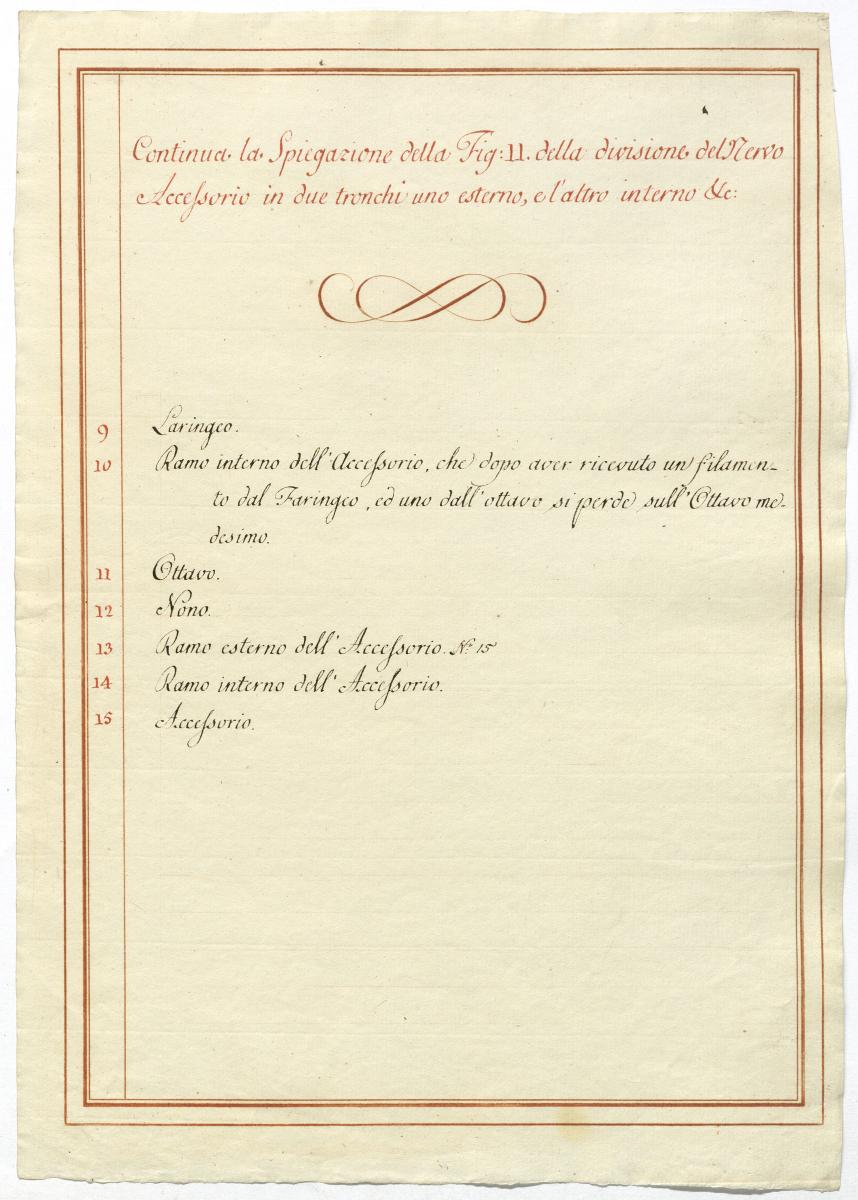 Continua la Spiegazione della Fig: 11. della divisione del Nervo
Accessorio in due tronchi uno esterno, e l'altro interno &c:
9 Laringeo.
10 Ramo interno dell'Accessorio, che dopo aver ricevuto un filamen-
to dal Faringeo, ed uno dall'ottavo si perde sull'Ottavo me-
desimo.
11 Ottavo.
12 Nono.
13 Ramo esterno dell'Accessorio. N.º 15
14 Ramo interno dell'Accessorio.
15 Accessorio.